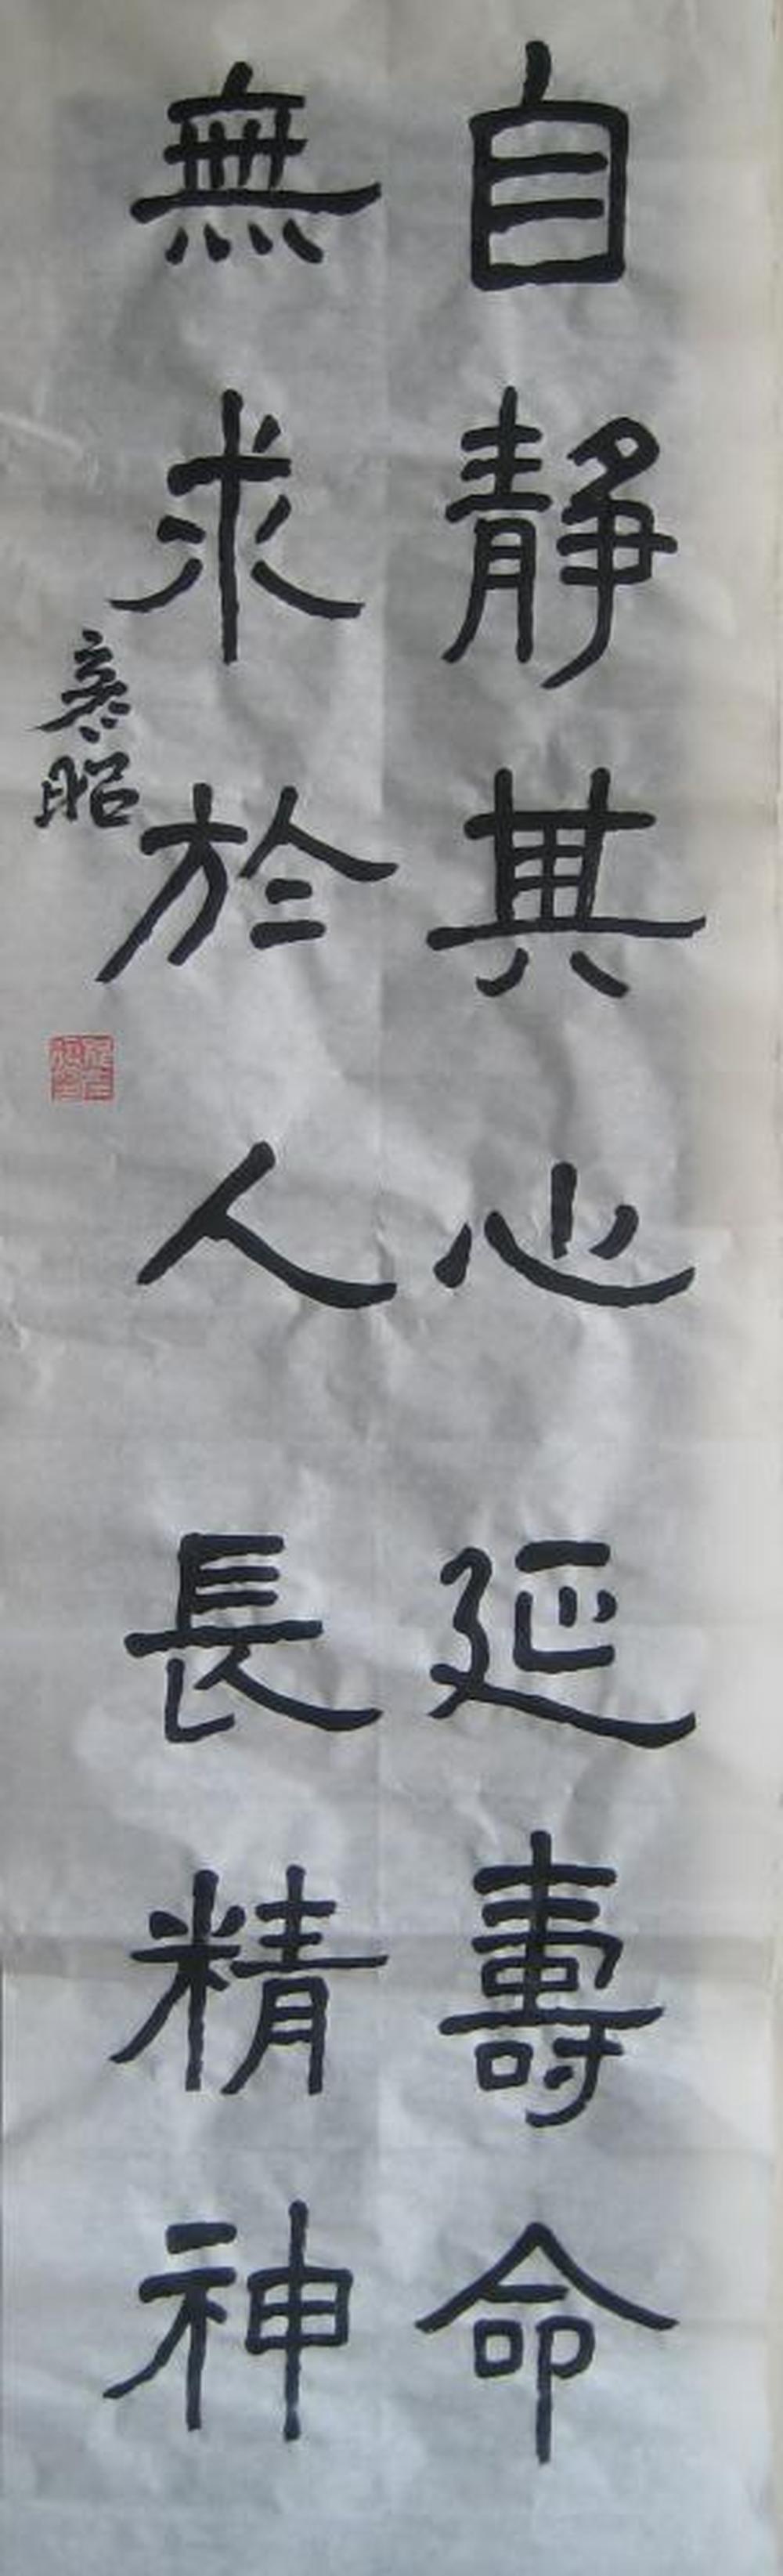 自靜其心延壽命
無求於人長精神